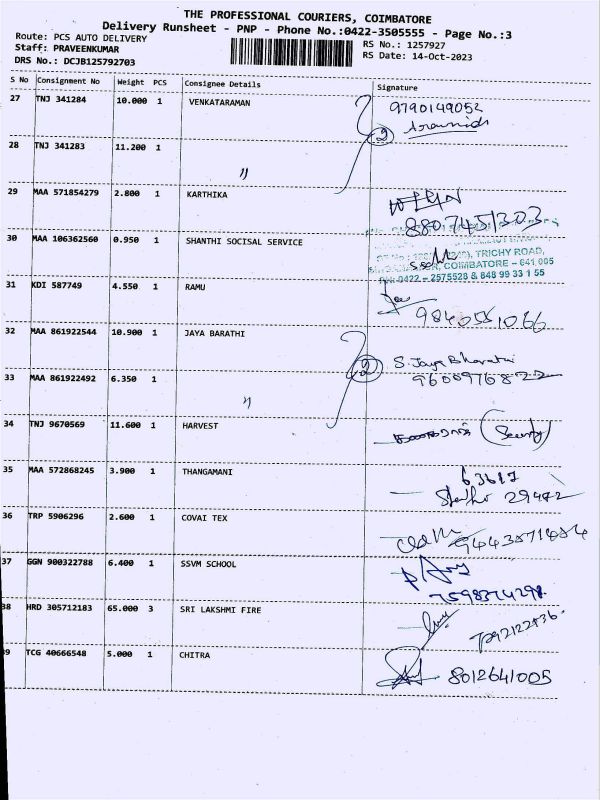 THE PROFESSIONAL COURIERS, COIMBATORE
Delivery Runsheet - PNP - Phone No.:0422-3505555 - Page No.:3
Route: PCS AUTO DELIVERY
RS No.: 1257927
Staff: PRAVEENKUMAR
RS Date: 14-Oct-2023
DRS No.: DCJB125792703
S No Consignment No Weight PCS Consignee Details Signature
27 TNJ 341284 10.000 1 VENKATARAMAN 9790149052
2
28 TNJ 341283 11.200 1 "
29 MAA 571854279 2.800 1 KARTHIKA
8807451303
30 MAA 106362560 0.950 1 SHANTHI SOCISAL SERVICE
TRICHY ROAD,
COIMBATORE - 641 005
0422 - 2575528 & 848 99 33 1 55
31 KDI 587749 4.550 1 RAMU
9840551066
32 MAA 861922544 10.900 1 JAYA BARATHI
2 S. Jaya Bharathi
9600976822
33 MAA 861922492 6.350 1 "
34 TNJ 9670569 11.600 1 HARVEST (Security)
35 MAA 572868245 3.900 1 THANGAMANI
63617
29472
36 TRP 5906296 2.600 1 COVAI TEX
37 GGN 900322788 6.400 1 SSVM SCHOOL
7598374298
38 HRD 305712183 65.000 3 SRI LAKSHMI FIRE
7292122836
39 TCG 40666548 5.000 1 CHITRA
8012641005